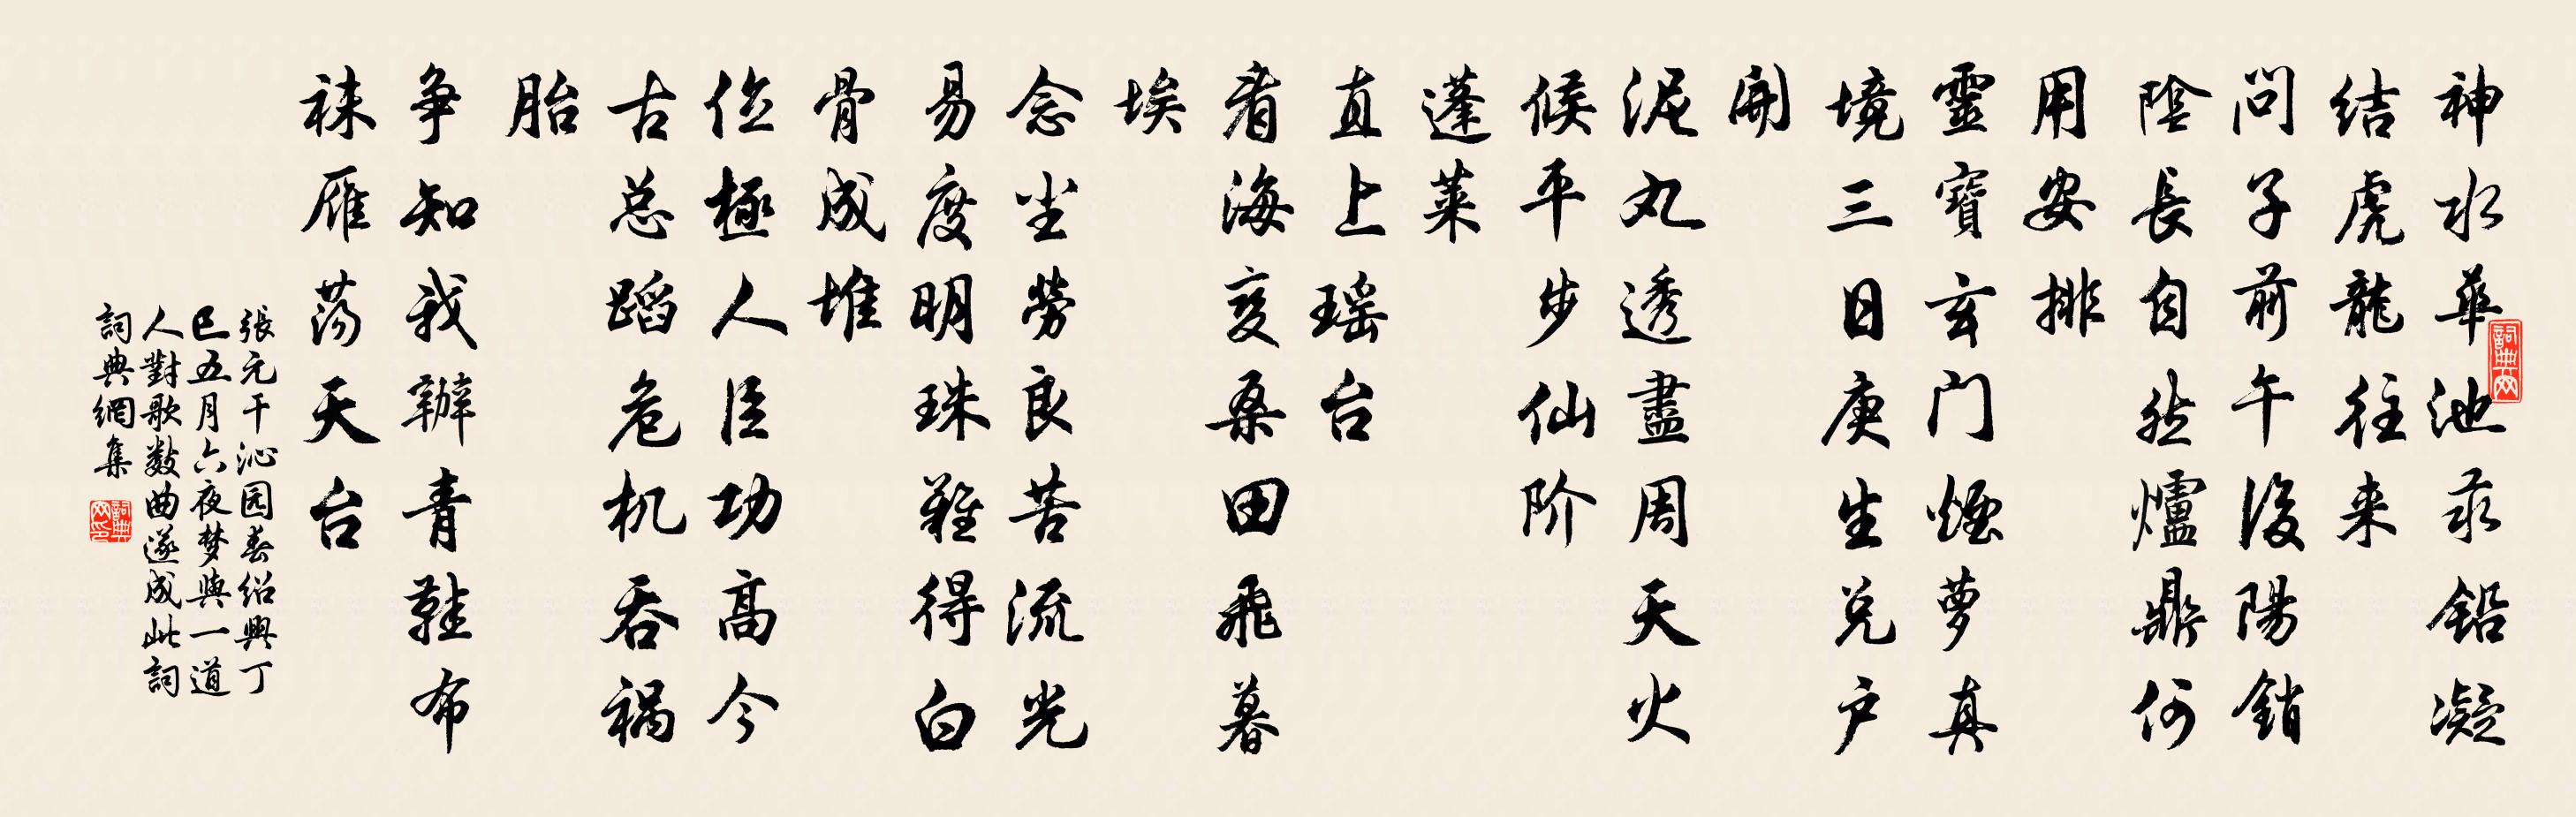 神水華池汞铅凝
结虎龍往来
問子前午後陽銷
陰長自然爐鼎何
用安排
靈寶玄门煙萝真
境三日庚生兑户
開
泥丸透盡周天火
候平步仙阶
蓬莱
直上瑶台
看海变桑田飛暮
埃
念尘勞良苦流光
易度明珠難得白
骨成堆
位極人臣功高今
古总蹈危机吞祸
胎
争知我辦青鞋布
袜雁荡天台
張元干沁园春绍興丁
巳五月六夜梦與一道
人對歌数曲遂成此詞
詞典網集
詞典网
詞典网印